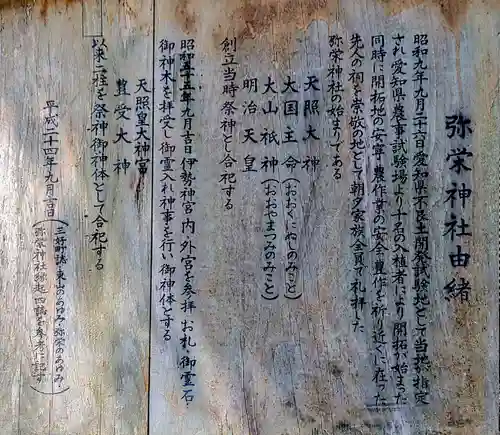 弥栄神社由緒
昭和九年九月二十六日愛知県不良土開発試験地として当地が指定
され愛知県農事試験場より十名の入植者により開拓が始まった
同時に開拓地の安寧・農作業の安全・豊作を祈り近くに在った
先人の祠を崇敬の地として朝夕家族全員で礼拝した
弥栄神社の始まりである
天照大神
大国主命(おおくにぬしのみこと)
大山祇神(おおやまつみのみこと)
明治天皇
創立当時祭神と合祀する
昭和五十五年九月吉日伊勢神宮内・外宮を参拝お札・御霊石・
御神木を拝受し御霊入れ神事を行い御神体とする
天照皇大神宮
豊受大神
以来二柱を祭神御神体として合祀する
平成二十四年九月吉日
(三好町誌・東山のあゆみ・弥栄のあゆみ・
弥栄神社縁起四誌を参考に記す)